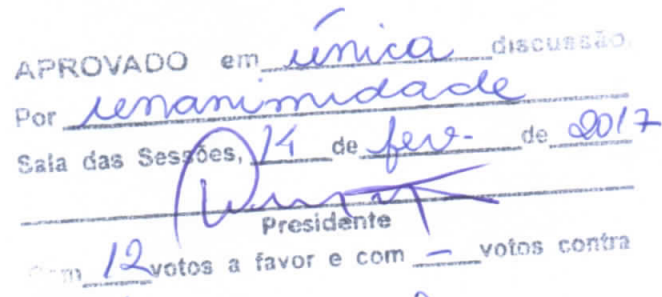 APROVADO em única discussão
Por unanimidade
Sala das Sessões, 14 de fev. de 2017
Presidente
Com 12 votos a favor e com — votos contra